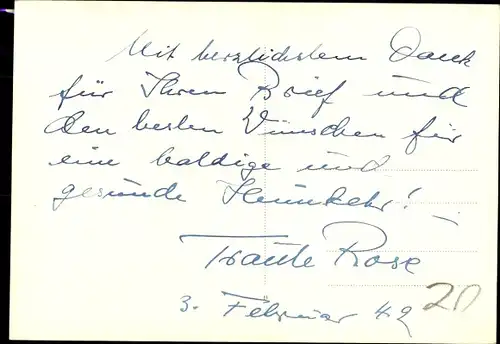 Mit herzlichstem Dank
für Ihren Brief und
den besten Wünschen für
eine baldige und
gesunde Heimkehr! –
Traute Rose
3. Februar 42
20